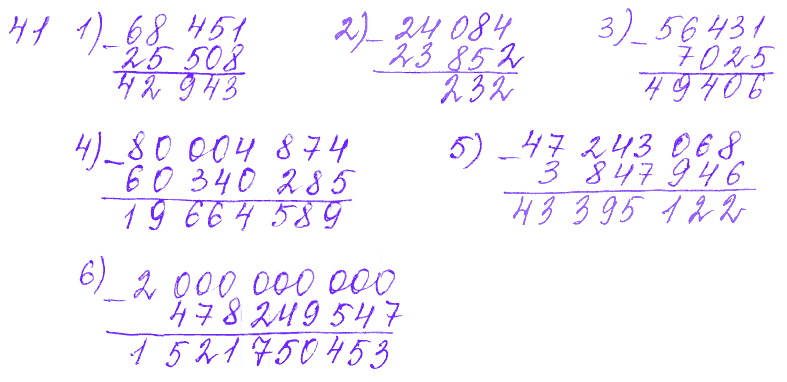 41 1) – 68 451 2) – 24 084 3) – 56 431
25 508 23 852 7025
42 943 232 49406
4) – 80 004 874 5) – 47 243 068
60 340 285 3 847 946
19 664 589 43 395 122
6) – 2 000 000 000
478 249 547
1 521 750 453